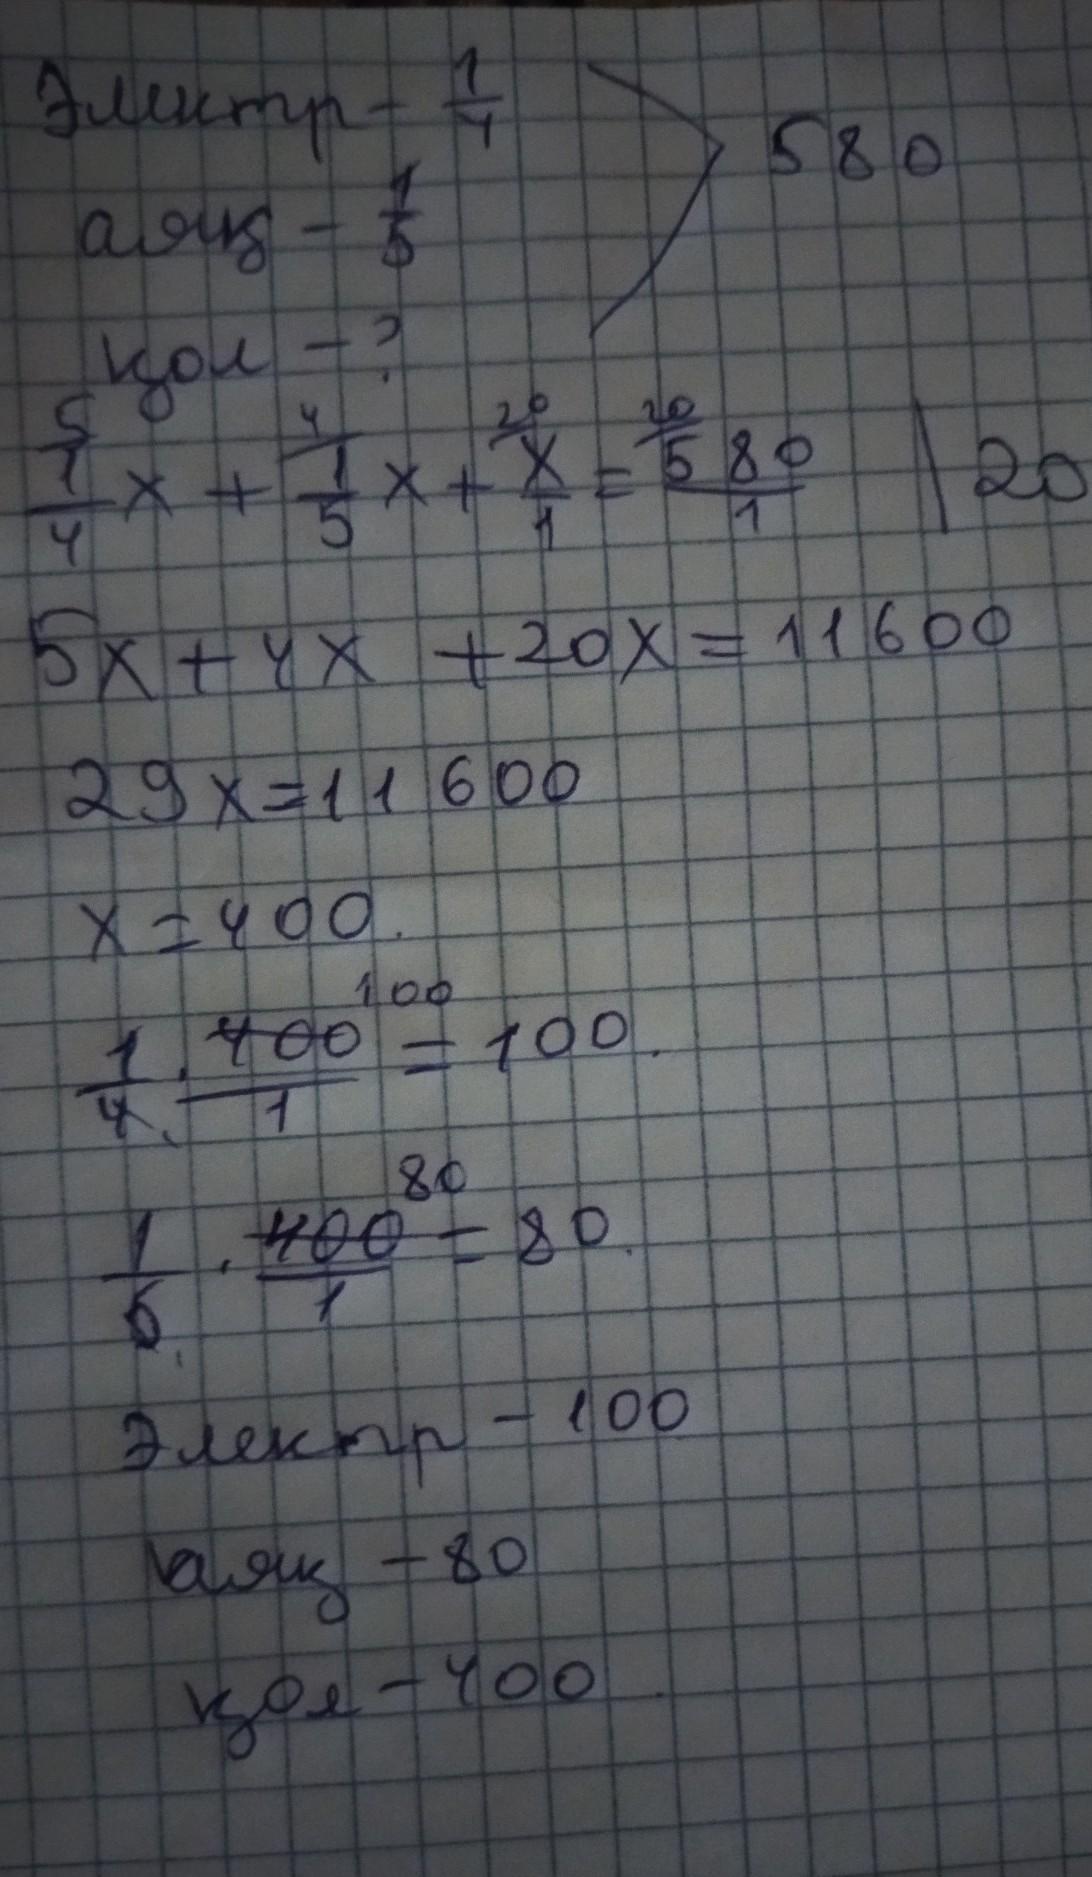 Электр - 1/4
аящ - 1/5 580
қол - ?
5 4 20 20
1/4 x + 1/5 x + x/1 = 580/1 | 20
5x + 4x + 20x = 11600
29x = 11600
x = 400.
100
1/4 · 400/1 = 100.
80
1/5 · 400/1 = 80.
Электр - 100
аящ - 80
қол - 400